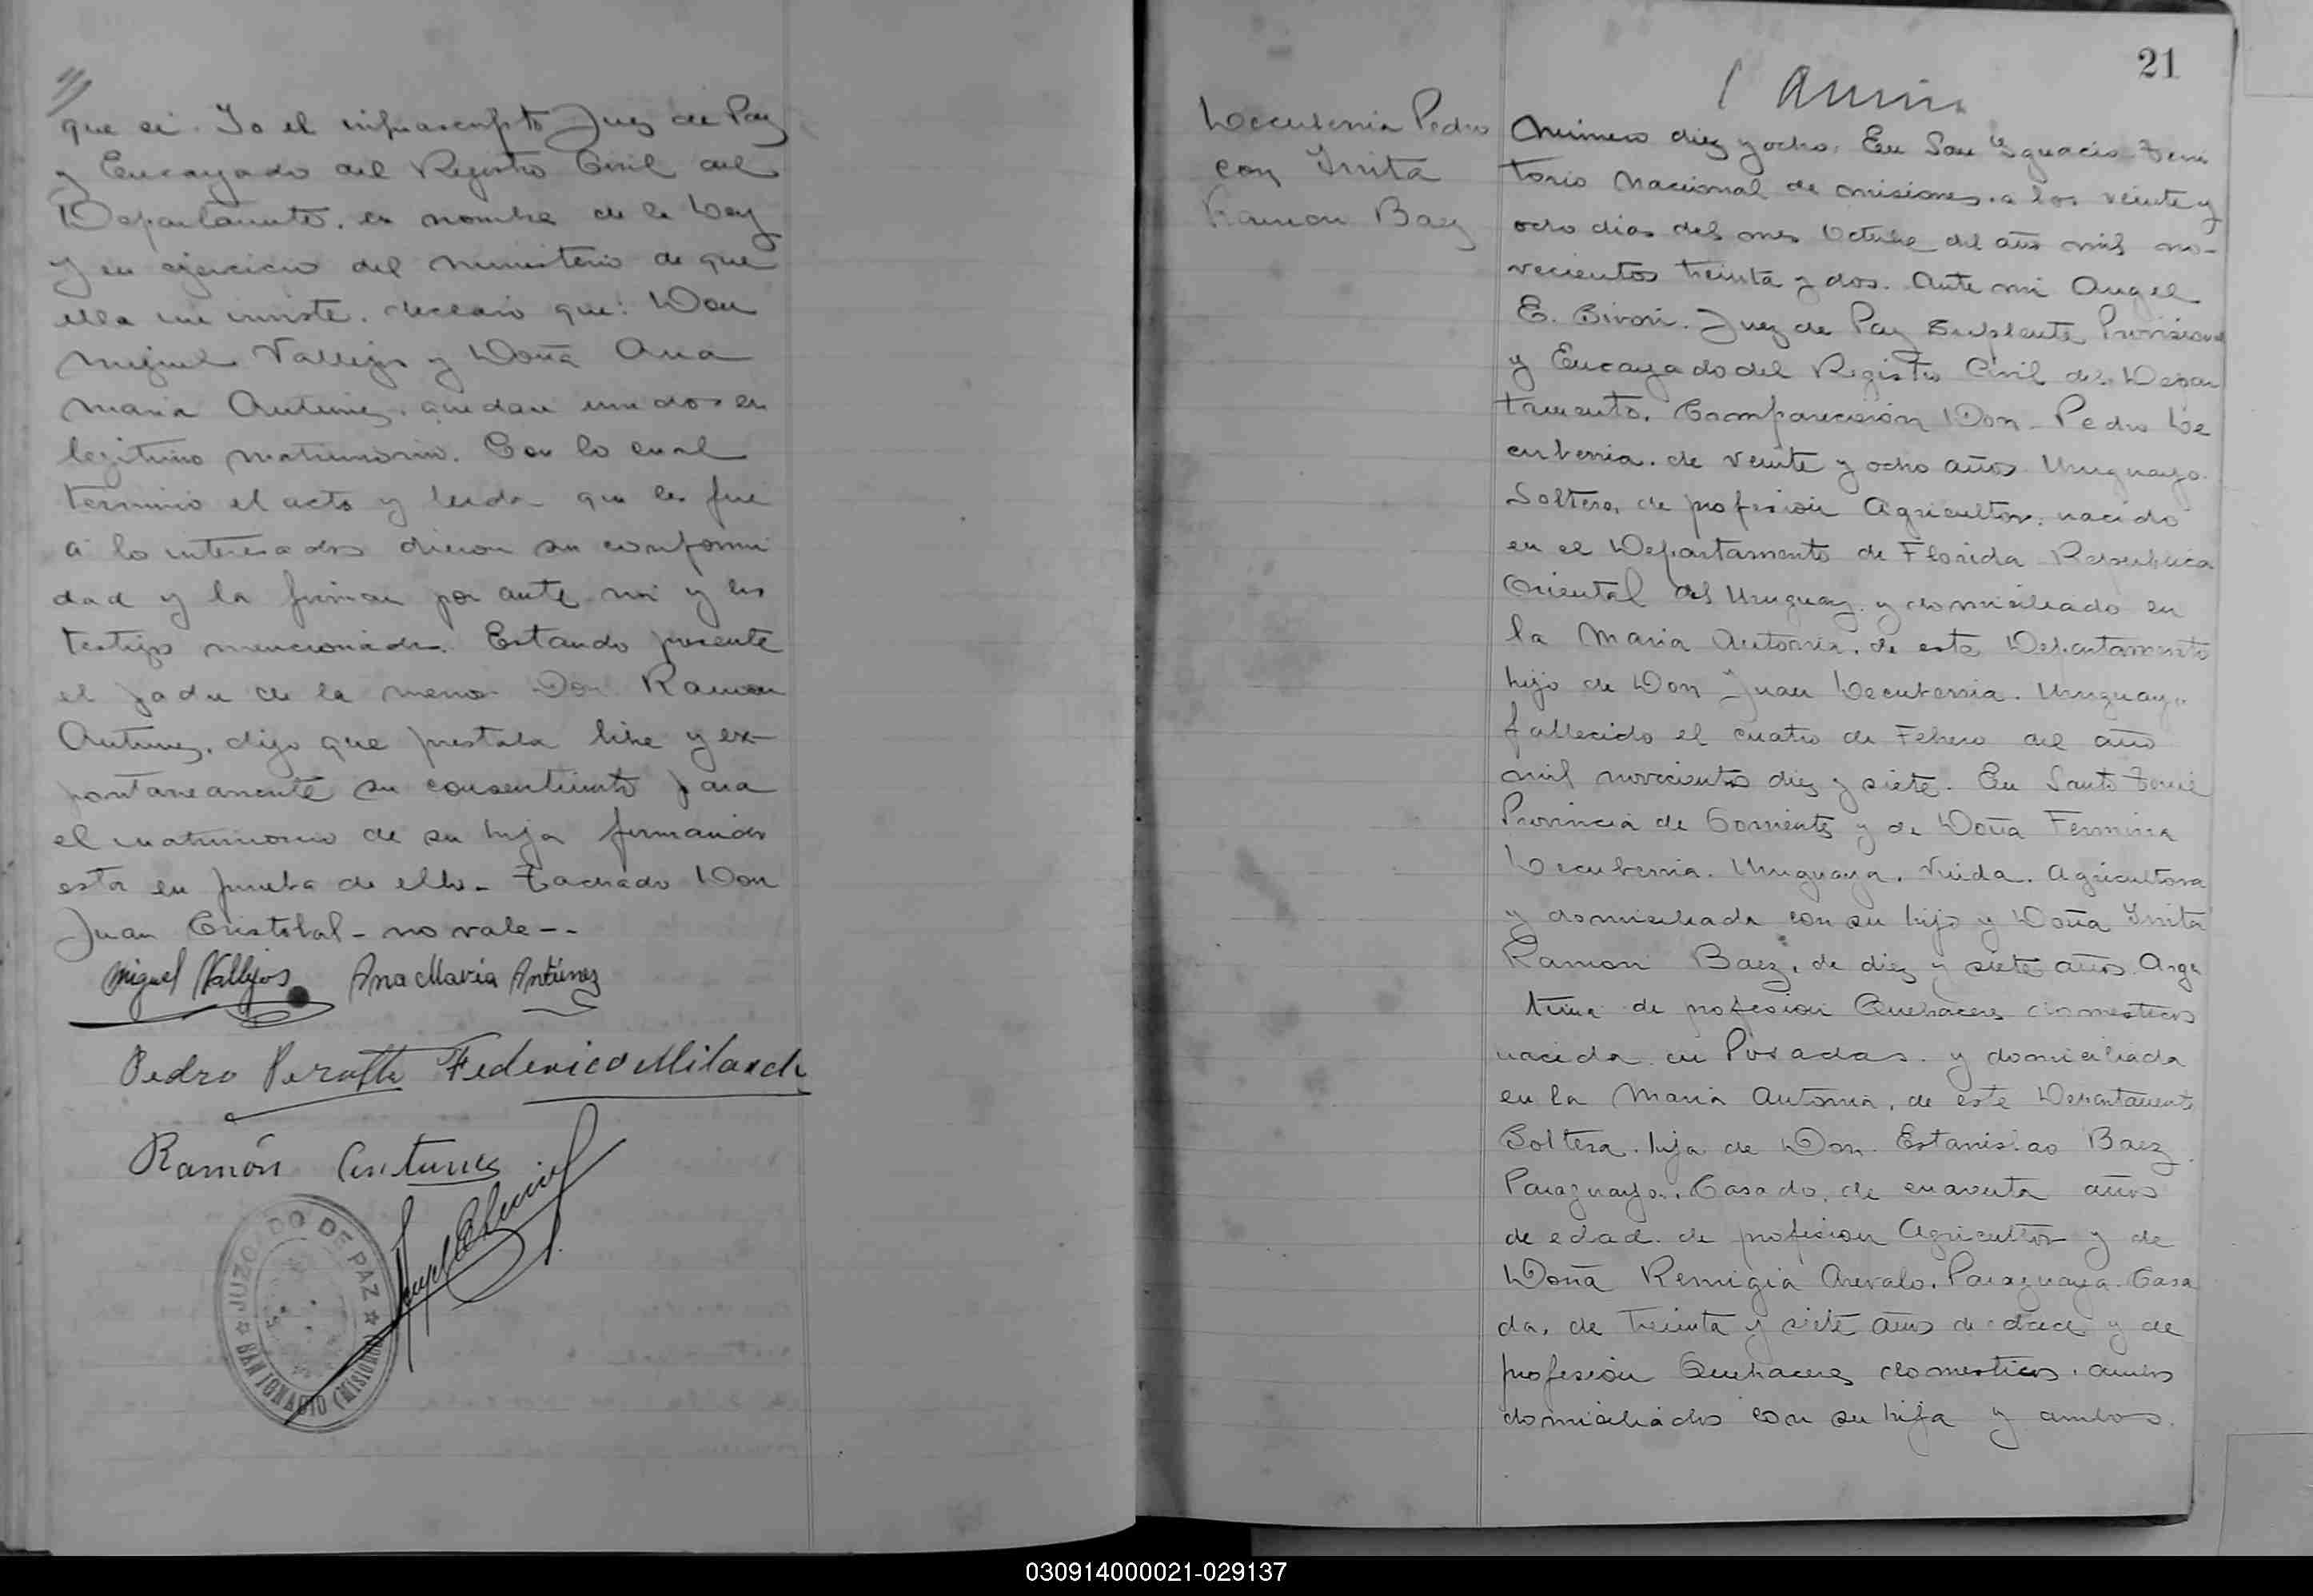 que si. Yo el infrascripto Juez de Paz
y Encargado del Registro Civil del
Departamento, en nombre de la Ley
y en ejercicio del ministerio de que
ella me inviste, declaro que: Don
Miguel Vallejos y Doña Ana
Maria Antunez, quedan unidos en
legitimo matrimonio. Con lo cual
termino el acto y leida que les fue
a lo interesados dieron su conformi
dad y la firman por ante mi y los
testigos mencionados. Estando presente
el padre de la menor Don Ramon
Antunez, dijo que prestaba libre y ex-
pontaneamente su consentimiento para
el matrimonio de su hija firmando
esta en prueba de ello - Tachado Don
Juan Cristobal - no vale - -
Miguel Vallejos Ana Maria Antúnez
Pedro Peralta Federico Milasch
Ramón Antunes
JUZGADO DE PAZ
SAN IGNACIO (MISIONES)
21
Lecuberria Pedro
con Irrita
Ramon Baez
Numero diez y ocho. En San Ygnacio Terri
torio Nacional de Misiones, a los veinte y
ocho dias del mes Octubre del año mil no-
vecientos treinta y dos. Ante mi Angel
E. Juez de Paz Suplente Provisional
y Encargado del Registro Civil del Depar
tamento. Comparecieron Don Pedro Le
cuberria, de veinte y ocho años Uruguayo.
Soltero, de profesion Agricultor, nacido
en el Departamento de Florida Republica
Oriental del Uruguay y domiciliado en
la Maria Antonia, de este Departamento
hijo de Don Juan Lecuberria. Uruguayo
fallecido el cuatro de Febrero del año
mil novecientos diez y siete. En Santo Tomé
Provincia de Corrientes y de Doña Fermina
Lecuberria. Uruguaya. Viuda. Agricultora
y domiciliada con su hijo y Doña Irrita
Ramon Baez, de diez y siete años Argen
tina de profesion Quehaceres domesticos
nacida en Posadas y domiciliada
en la Maria Antonia, de este Departamento
Soltera. hija de Don Estanislao Baez
Paraguayo. Casado, de cuarenta años
de edad de profesion Agricultor y de
Doña Remigia Arevalo. Paraguaya. Casa
da, de treinta y siete años de edad y de
profesión Quehaceres domesticos, ambos
domiciliados con su hija y ambos.
030914000021-029137